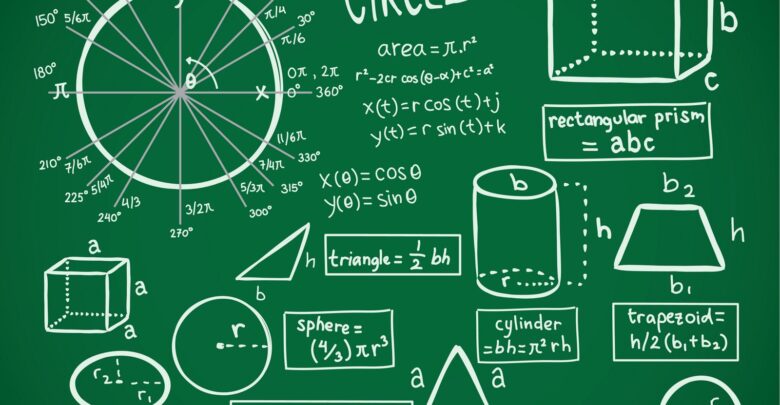 CIRCLE
π/4
30°
π/6
150° 5/6π
180°
π
θ
x
0π, 2π
0° 360°
11/6π
330°
7/4π
315°
5/3π
300°
3/2π
270°
4/3
240°
5/4π
225°
7/6π
210°
area = π.r²
r²-2cr cos(θ-α)+c²=a²
x(t)=r cos(t)+j
y(t)=r sin(t)+k
x(θ)=cosθ
y(θ)=sinθ
b
c
rectangular prism
= abc
b
h
r
b₂
h
b₁
h
b
triangle = 1/2 bh
a
a
a
r
sphere =
(4/3)πr³
cylinder
=bh=π²rh
trapezoid=
h/2(b₁+b₂)
r₂
r₁
a
a
r